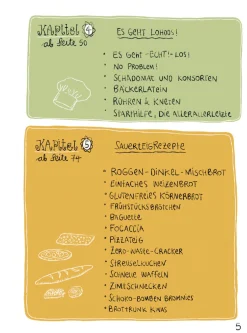 KAPitel 4
ab Seite 50
ES GEHT LOHOOS!
• ES GEHT -ECHT!- LOS!
• NO PROBLEM!
• SCHADOMAT UND KONSORTEN
• BÄCKERLATEIN
• RÜHREN & KNETEN
• STARTHILFE, DIE ALLERALLERLETZTE
KAPitel 5
ab Seite 74
SAUERTEIGREZEPTE
• ROGGEN-DINKEL-MISCHBROT
• EINFACHES WEIZENBROT
• GLUTENFREIES KÖRNERBROT
• FRÜHSTÜCKSBRÖTCHEN
• BAGUETTE
• FOCACCIA
• PIZZATEIG
• ZERO-WASTE-CRACKER
• STREUSELKUCHEN
• SCHNELLE WAFFELN
• ZIMTSCHNECKEN
• SCHOKO-BOMBEN BROWNIES
• BROTTRUNK KWAS
5